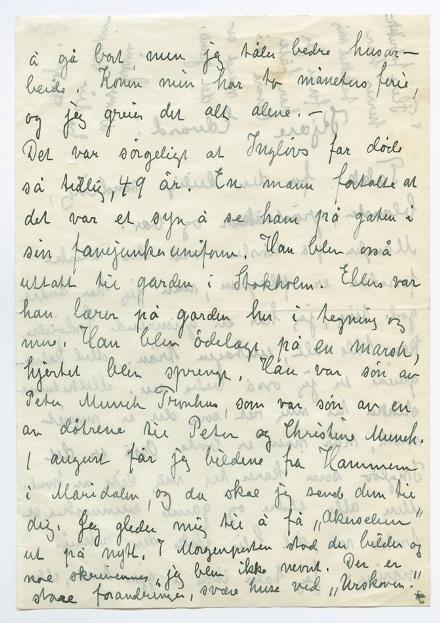 å gå bort, men jeg tåler bedre husar-
beide. Konen min har to måneters ferie,
og jeg greier det alt alene. –
Det var sörgeligt at Inglövs far döde
så tidlig, 49 år. En mann fortalte at
det var et syn å se ham på gaten i
sin fanejunkeruniform. Han blev også
uttatt til garden i Stokholm. Ellers var
han lærer på garden her i tegning og
mere. Han blev ödelagt på en marsh,
hjertet blev sprengt. Han var sön av
Peter Munch Tronhus, som var sön av en
av döbrene til Peter og Christine Munch.
I august får jeg bildene fra Hammeren
i Maridalen, og da skal jeg send dem til
dig. Jeg gleder mig til å få „Akerselven"
ut på nytt. I Morgenposten stod der bilder og
noe skrivennes, jeg blev ikke nevnt. Der er
store forandringer, svære huse ved „Urskoven."